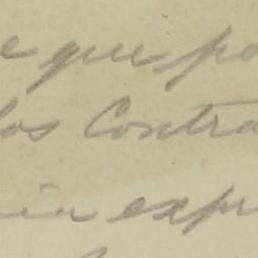 e que po
los Contra
in expr